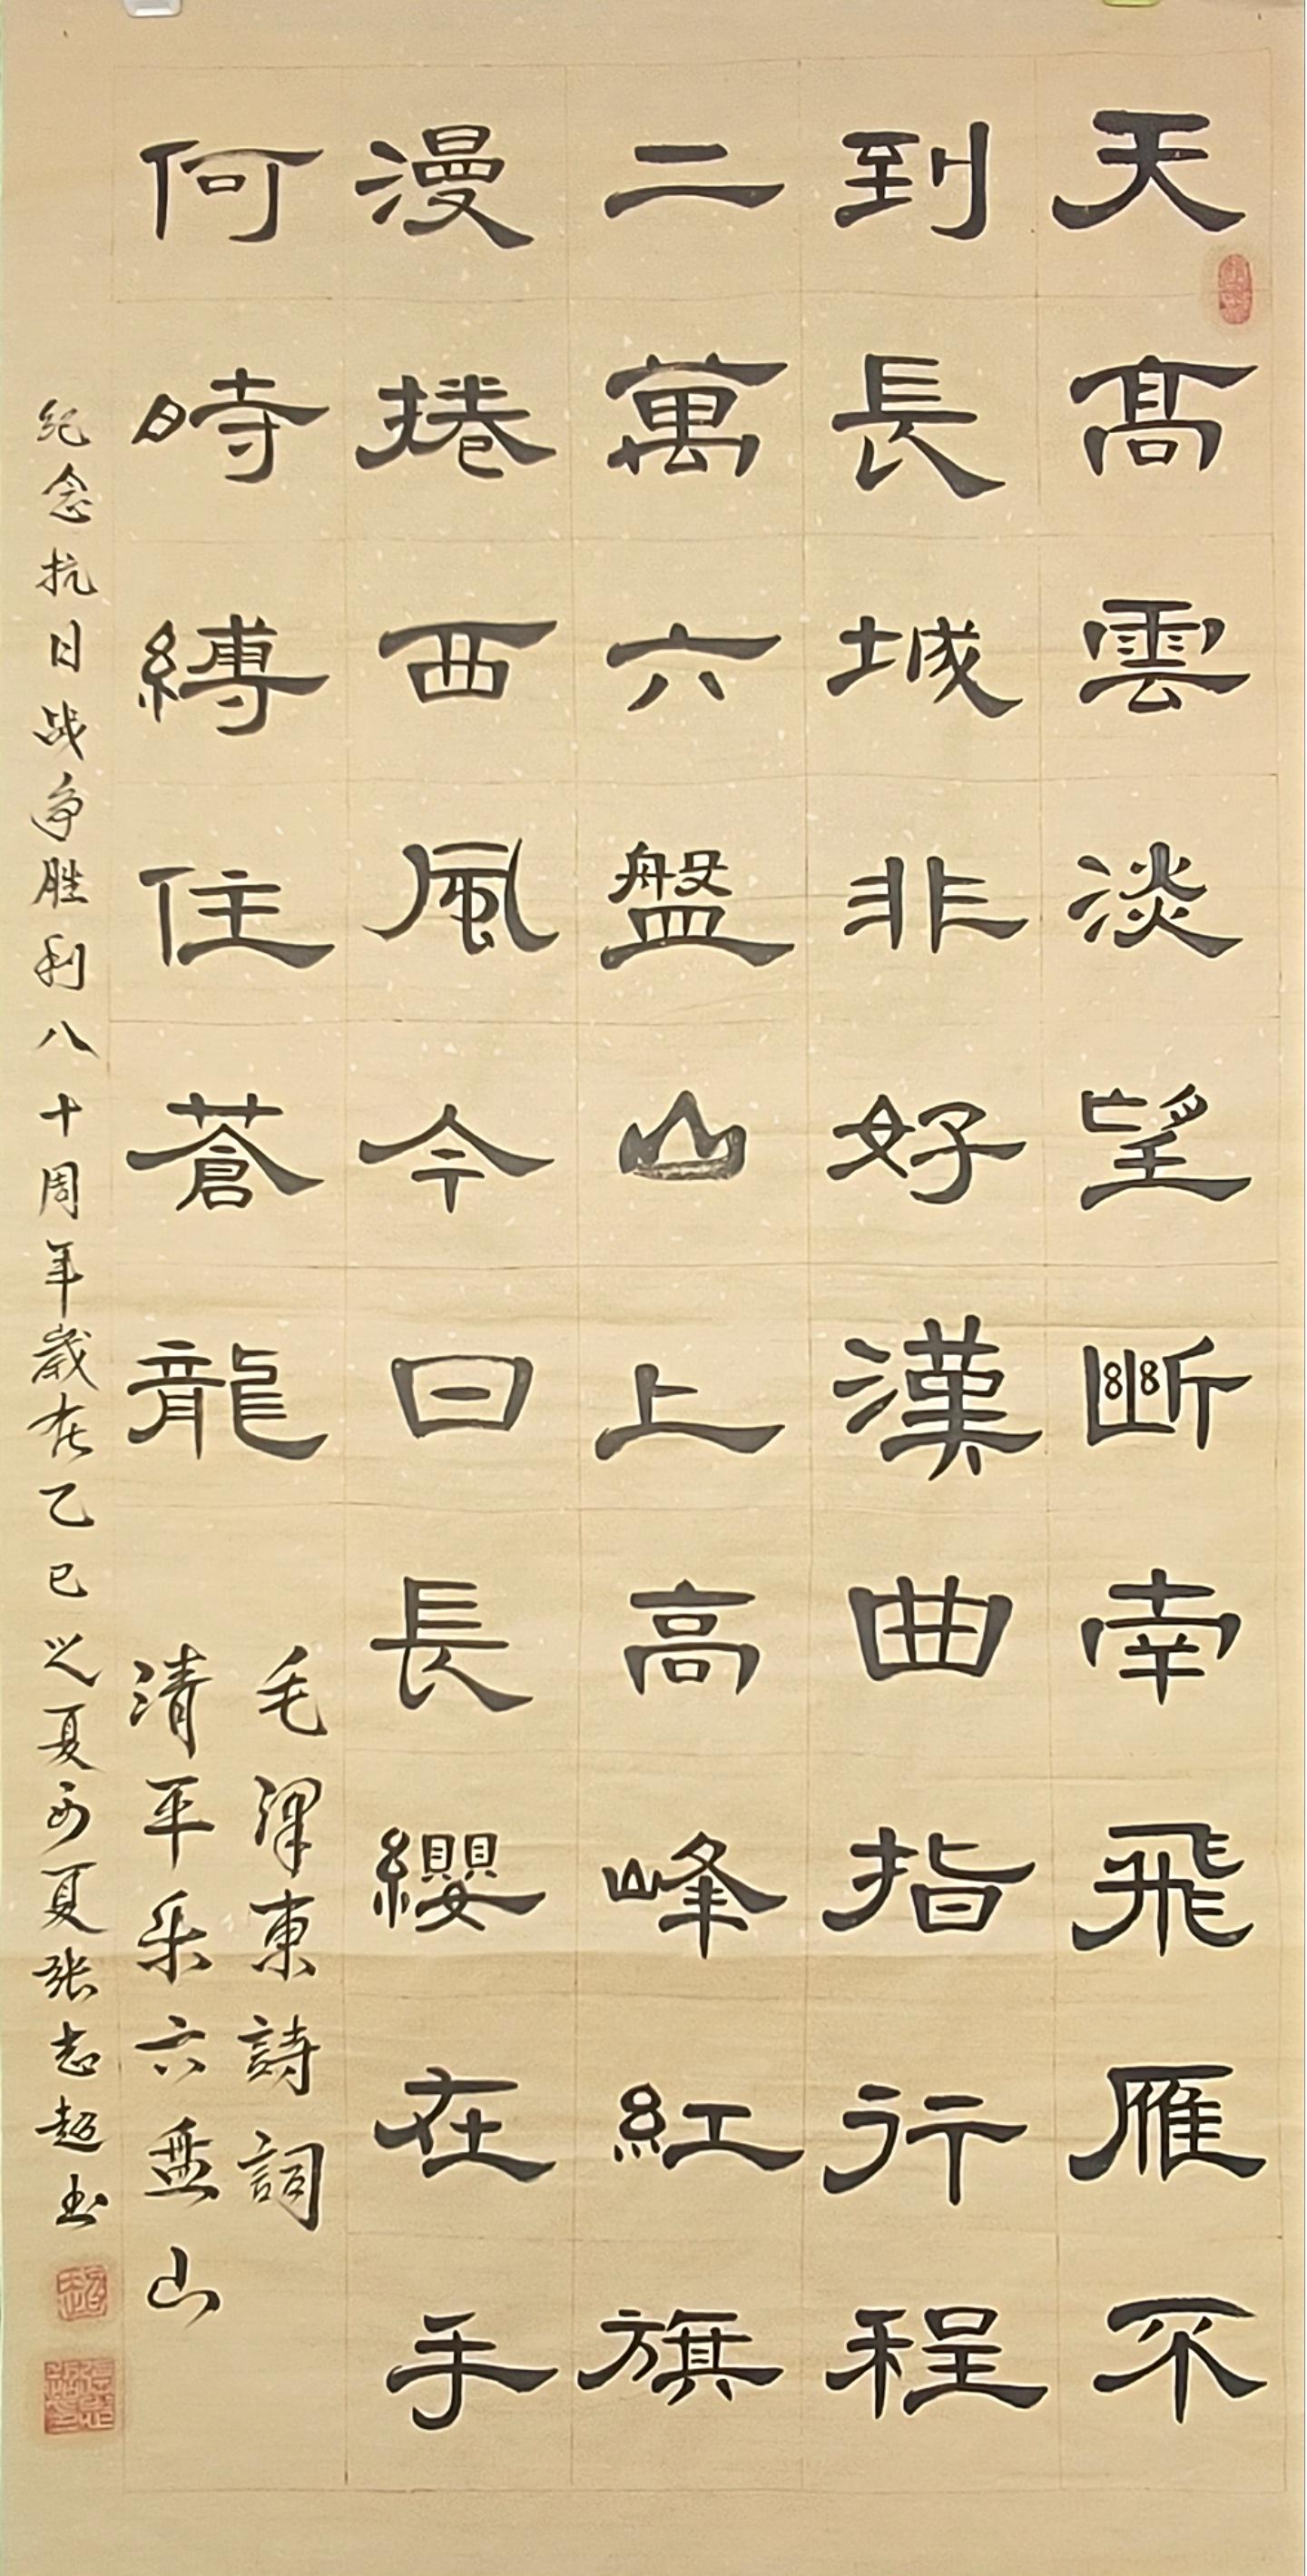 天高雲淡望斷南飛雁不
到長城非好漢曲指行程
二萬六盤山上高峰紅旗
漫捲西風今日長纓在手
何時縛住蒼龍
毛澤東詩詞
清平乐六盘山
纪念抗日战争胜利八十周年歲在乙巳之夏初夏张志超书